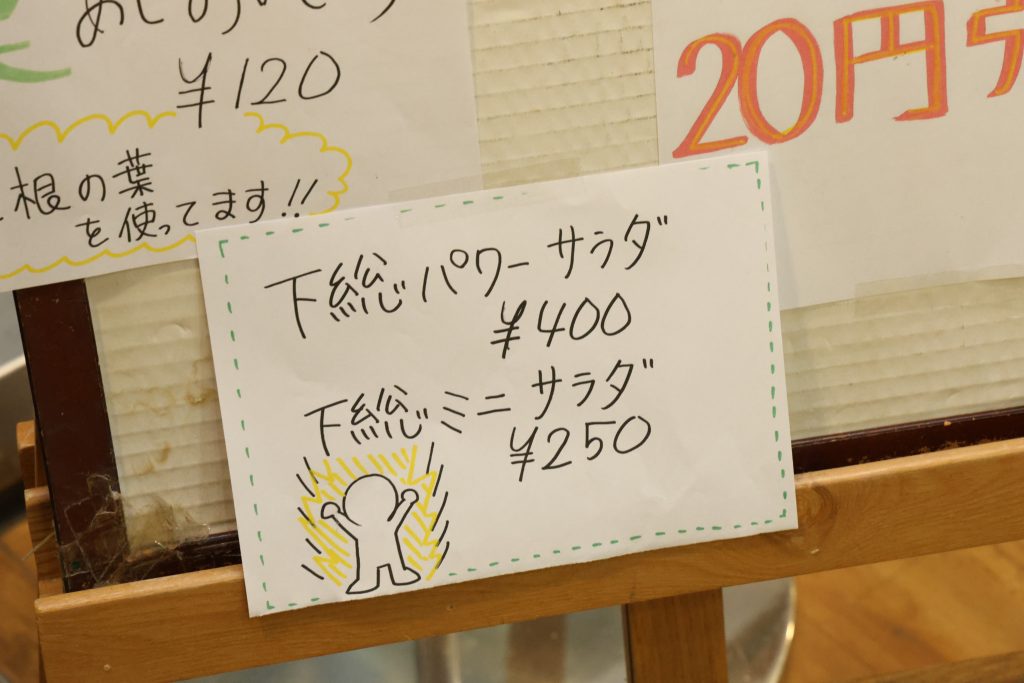 ¥120
根の葉
を使ってます!!
20円
下総パワーサラダ
¥400
下総ミニサラダ
¥250